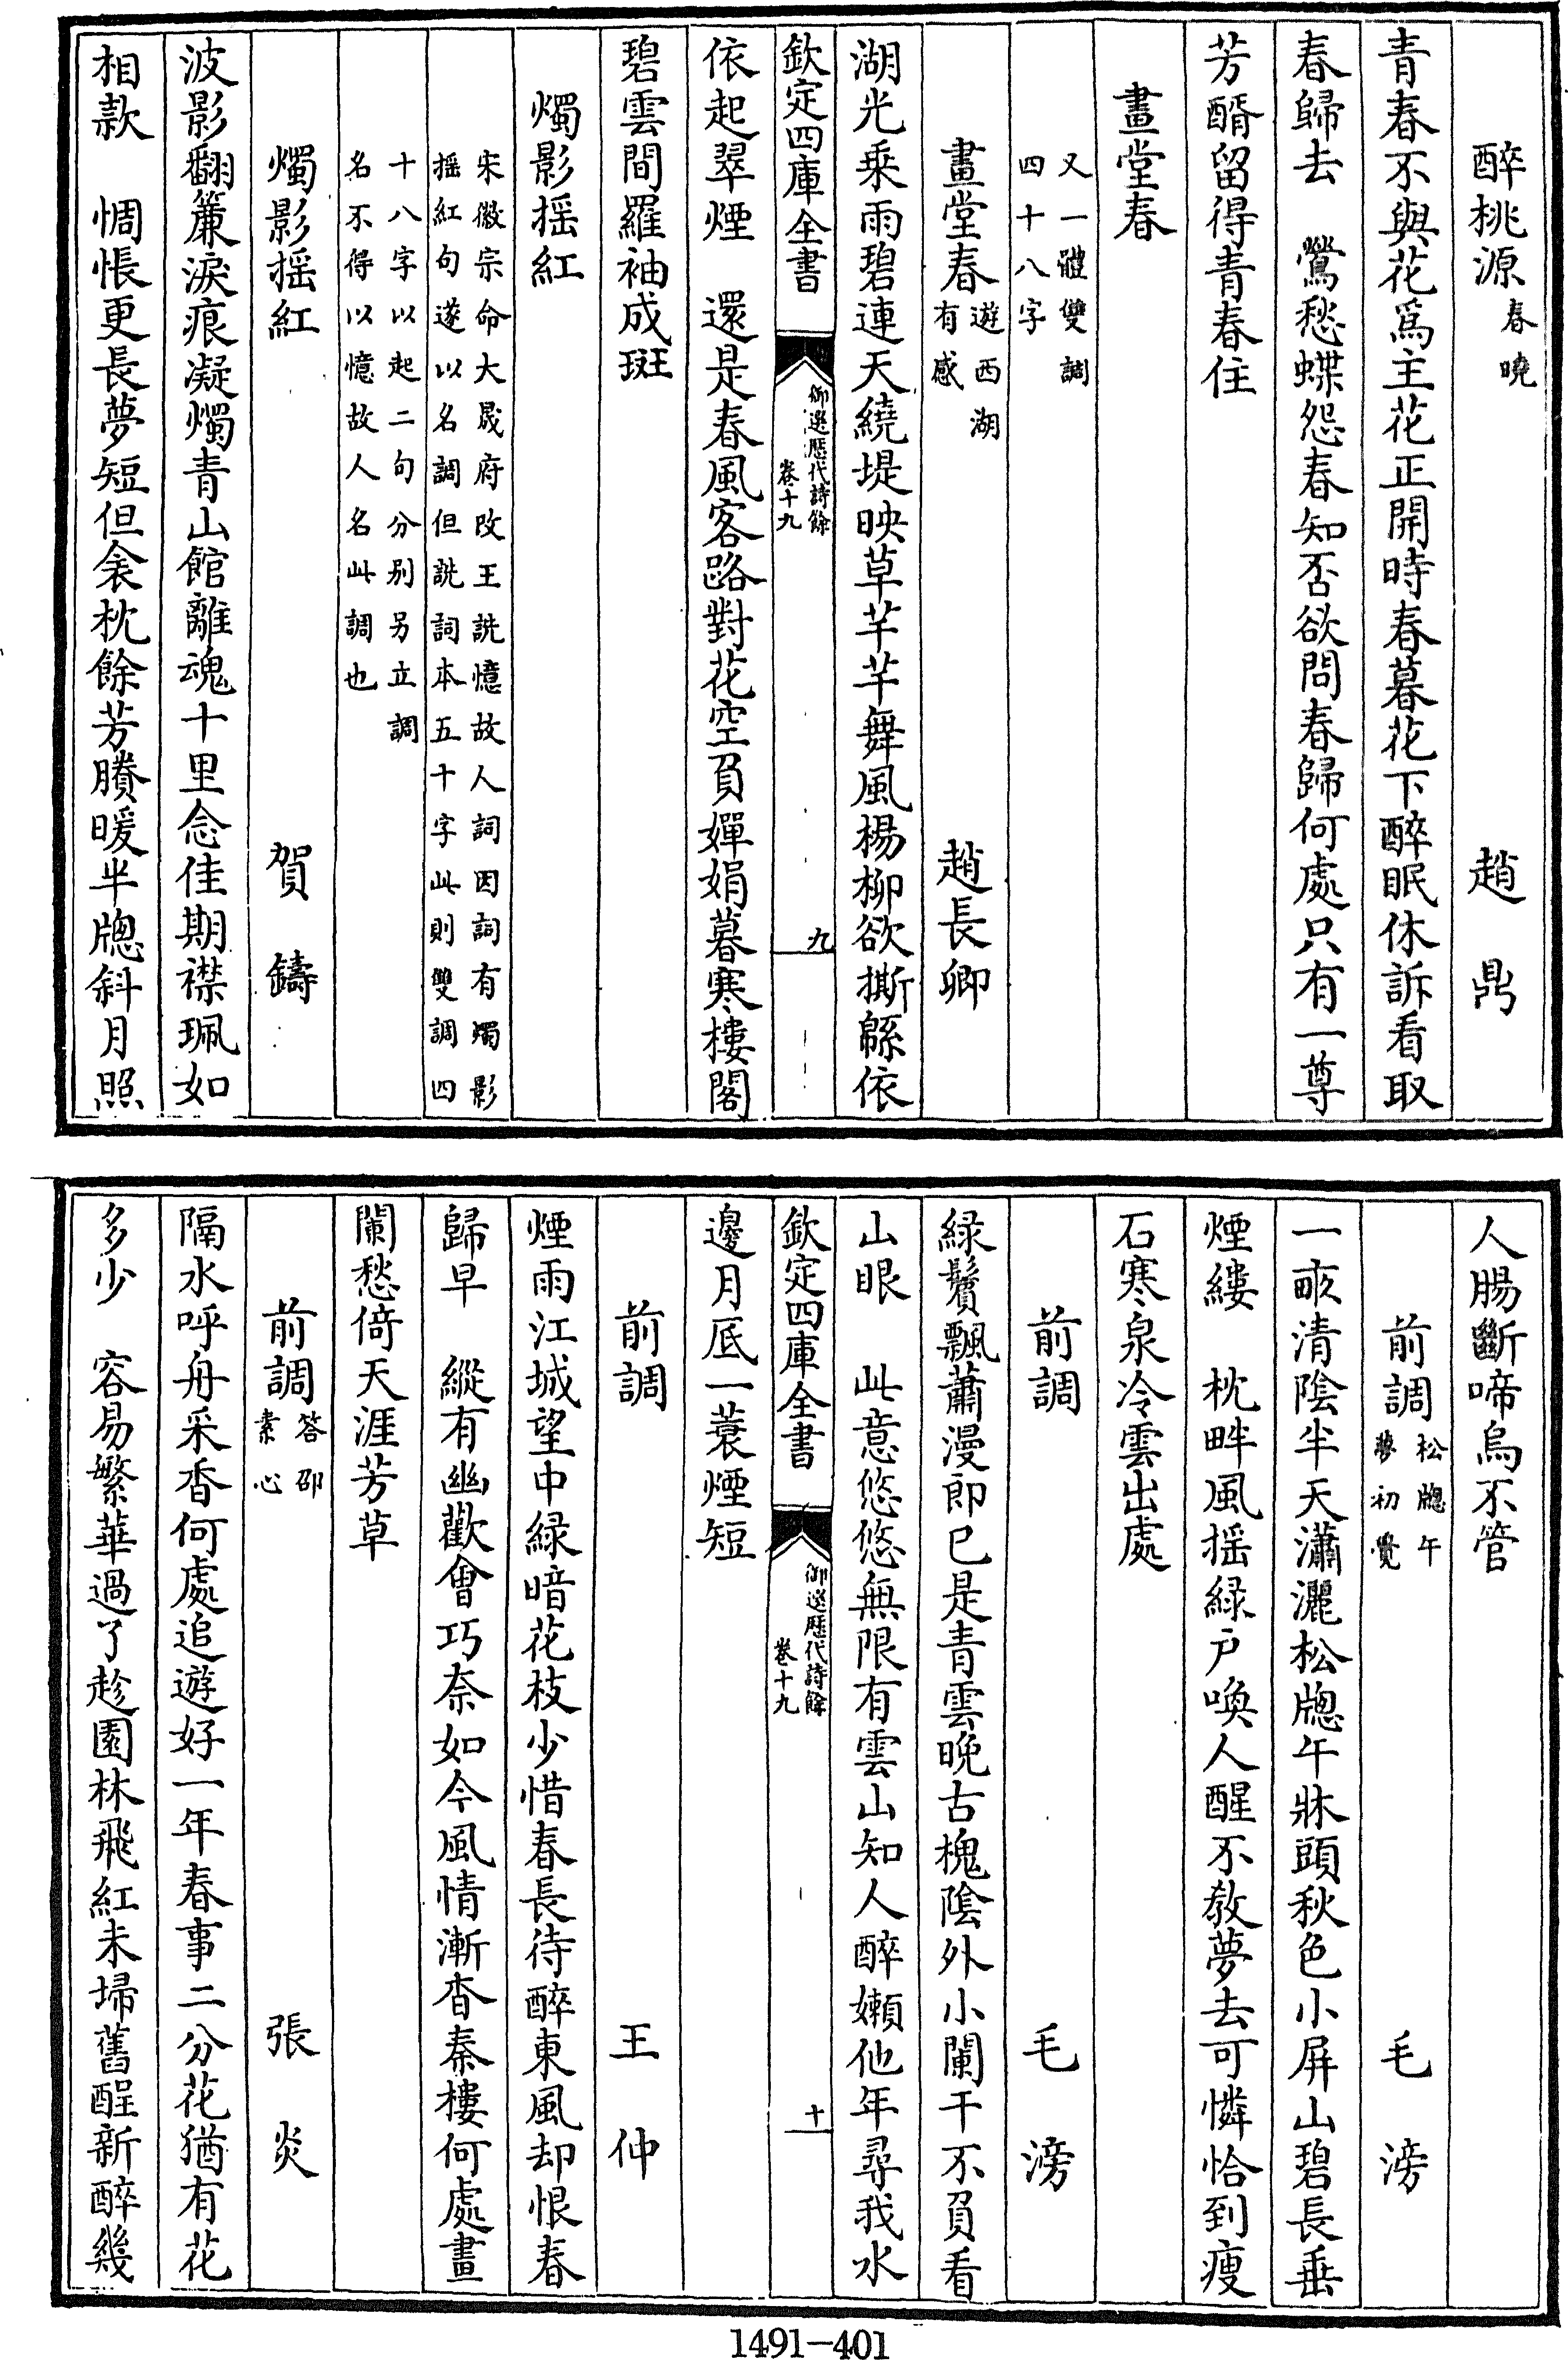 醉桃源春曉　趙鼎
青春不與花爲主花正開時春暮花下醉眠休訴看取
春歸去　鶯愁蝶怨春知否欲問春歸何處只有一尊
芳醑留得青春住
畫堂春
又一體雙調
四十八字
畫堂春遊西湖有感　趙長卿
湖光乗雨碧連天繞堤映草芊芊舞風楊柳欲撕緜依
欽定四庫全書
御選歷代詩餘
卷十九
九
依起翠煙　還是春風客路對花空負嬋娟暮寒樓閣
碧雲間羅袖成斑
燭影揺紅
宋徽宗命大晟府改王詵憶故人詞因詞有燭影
揺紅句遂以名調但詵詞本五十字此則雙調四
十八字以起二句分别另立調
名不得以憶故人名此調也
燭影揺紅　賀鑄
波影翻簾淚痕凝燭青山館離魂十里念佳期襟珮如
相款　惆悵更長夢短但衾枕餘芳賸暖半牕斜月照
人腸斷啼烏不管
前調松牕午夢初覺　毛滂
一畝清陰半天瀟灑松牕午牀頭秋色小屏山碧長垂
煙縷　枕畔風揺緑户喚人醒不教夢去可憐恰到瘦
石寒泉冷雲出處
前調　毛滂
緑鬢飄蕭漫郎已是青雲晚古槐陰外小闌干不負看
山眼　此意悠悠無限有雲山知人醉嬾他年尋我水
欽定四庫全書
御選歷代詩餘
卷十九
十
邊月底一蓑煙短
前調　王仲
煙雨江城望中緑暗花枝少惜春長待醉東風却恨春
歸早　縱有幽歡會巧奈如今風情漸杳秦樓何處畫
闌愁倚天涯芳草
前調答邵素心　張炎
隔水呼舟采香何處追遊好一年春事二分花猶有花
多少　容易繁華過了趁園林飛紅未埽舊酲新醉幾
1491-401